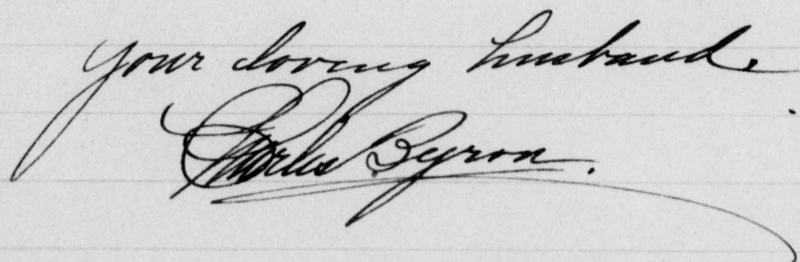 your loving husband.
Charles Byron.